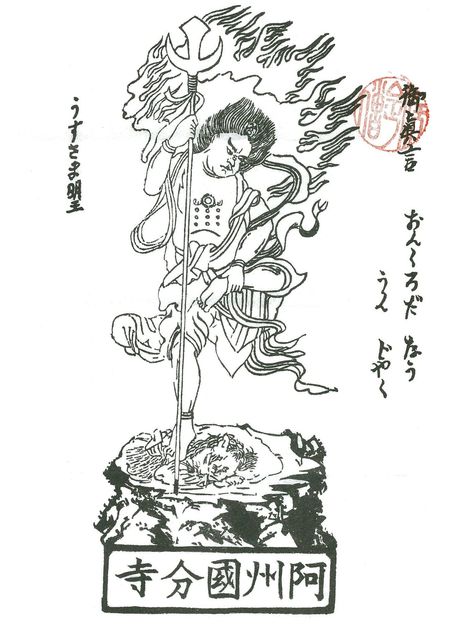 御眞言
おんくろだ なう
うん じやく
うすさま明王
阿州國分寺